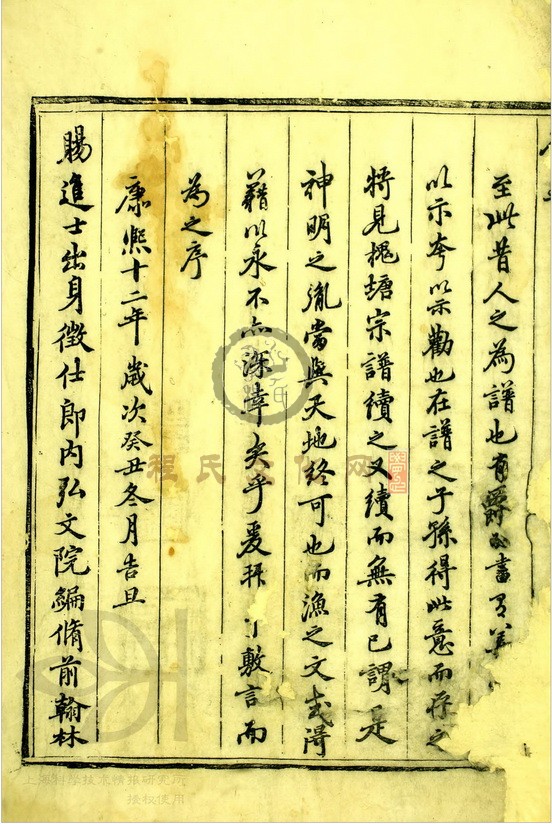 至此昔人之為譜也有爵必書
以示夸以示勸也在譜之子孫得此意而存之
將見槐塘宗譜續之又續而無有已謂是
神明之胤當與天地終可也而漁之文或得
藉以永不亦深幸矣乎爰拜 敷言而
為之序
康熙十二年歲次癸丑冬月告旦
賜進士出身徵仕郎內弘文院編脩前翰林
程氏文化网
上海科学技术情报研究所
授权使用